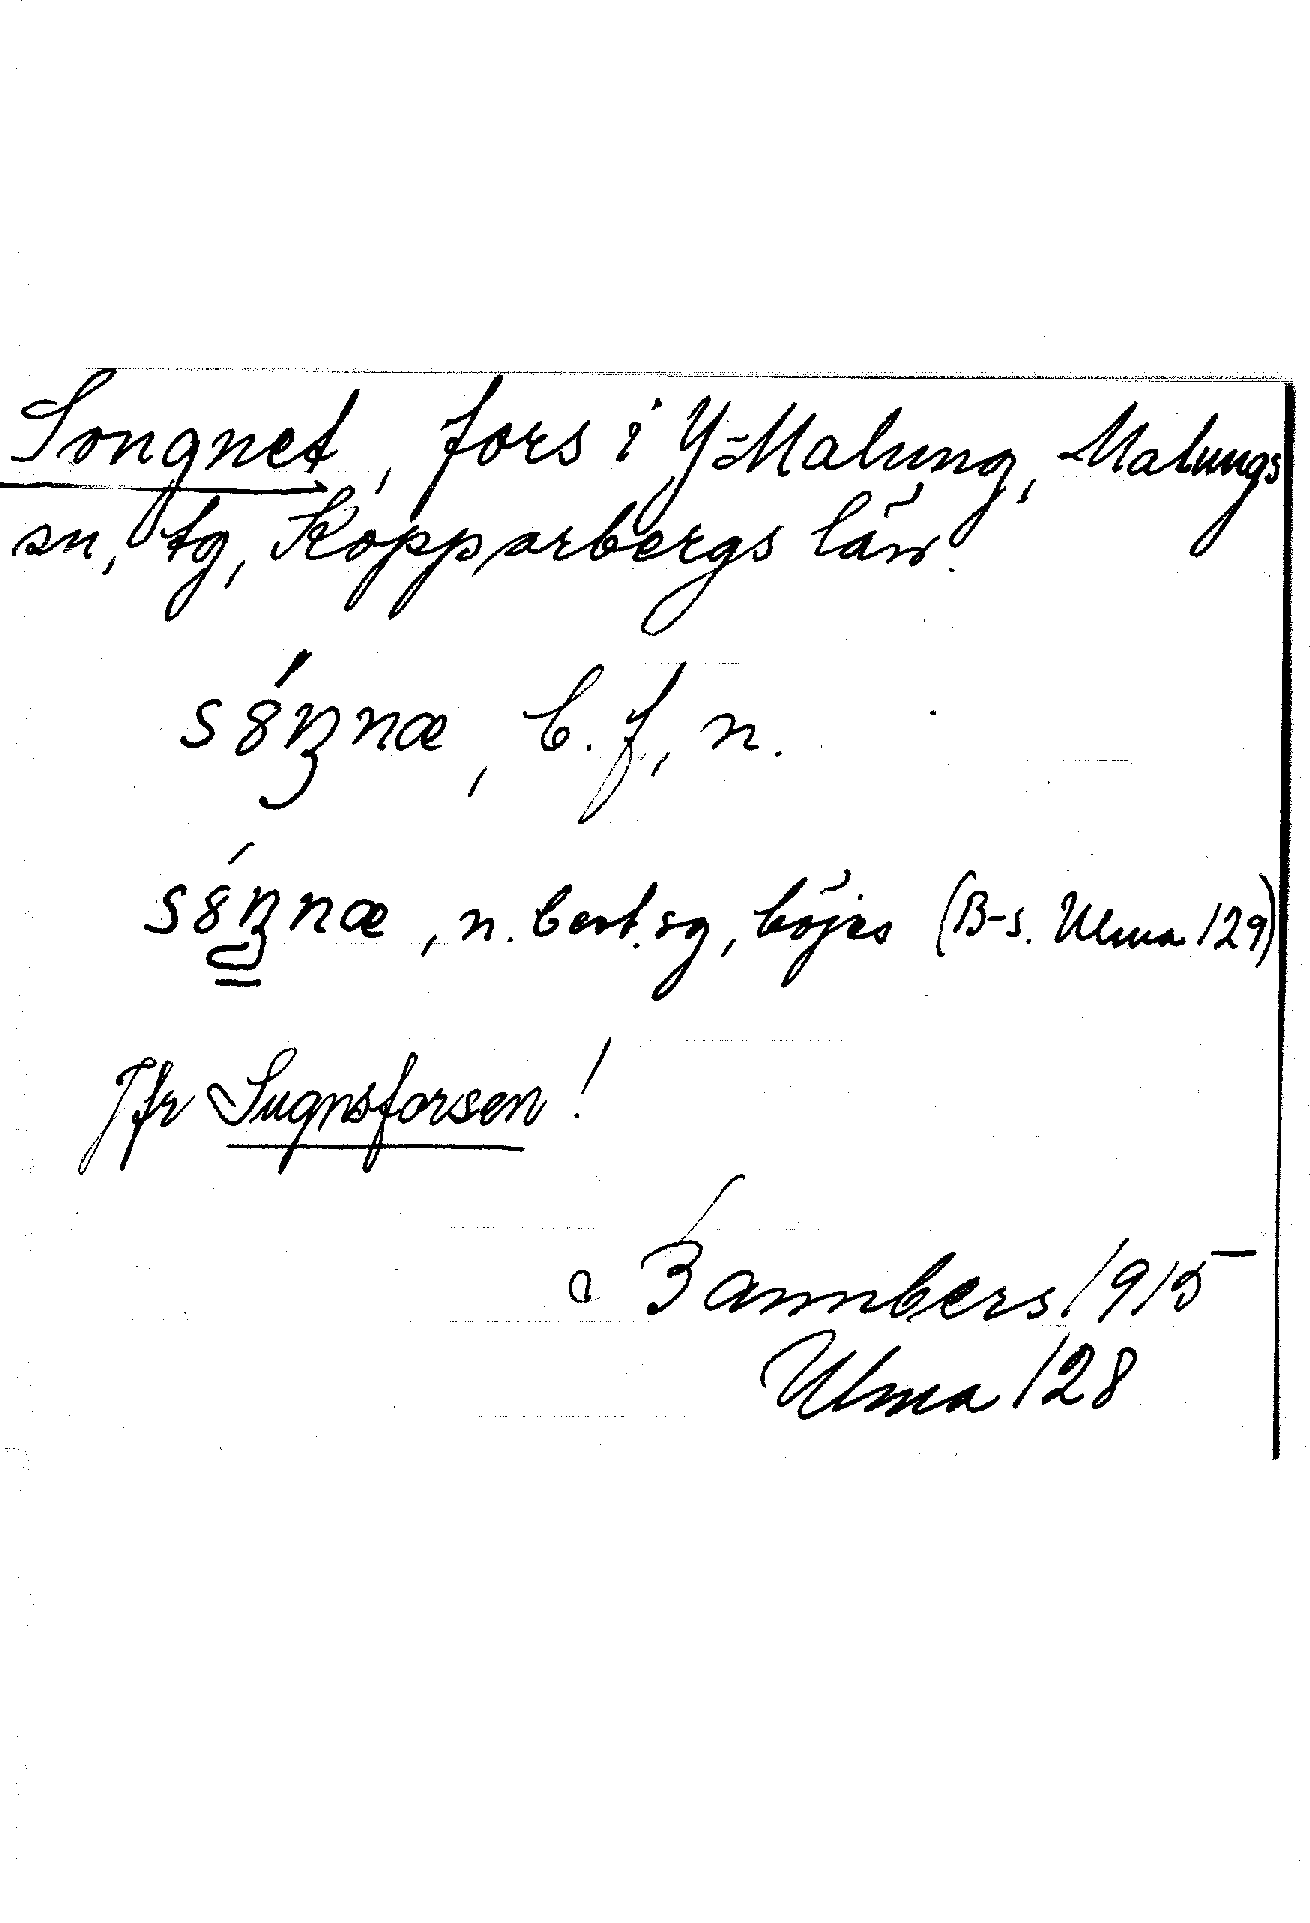 Songnet, fors i Y-Malung, Malungs
sn, tg, Kopparbergs län.
b. f, n.
n. best. sg, böjes (B-s. Ulma 129)
Jfr Sugnsforsen!
Bannbers 1915
Ulma 128